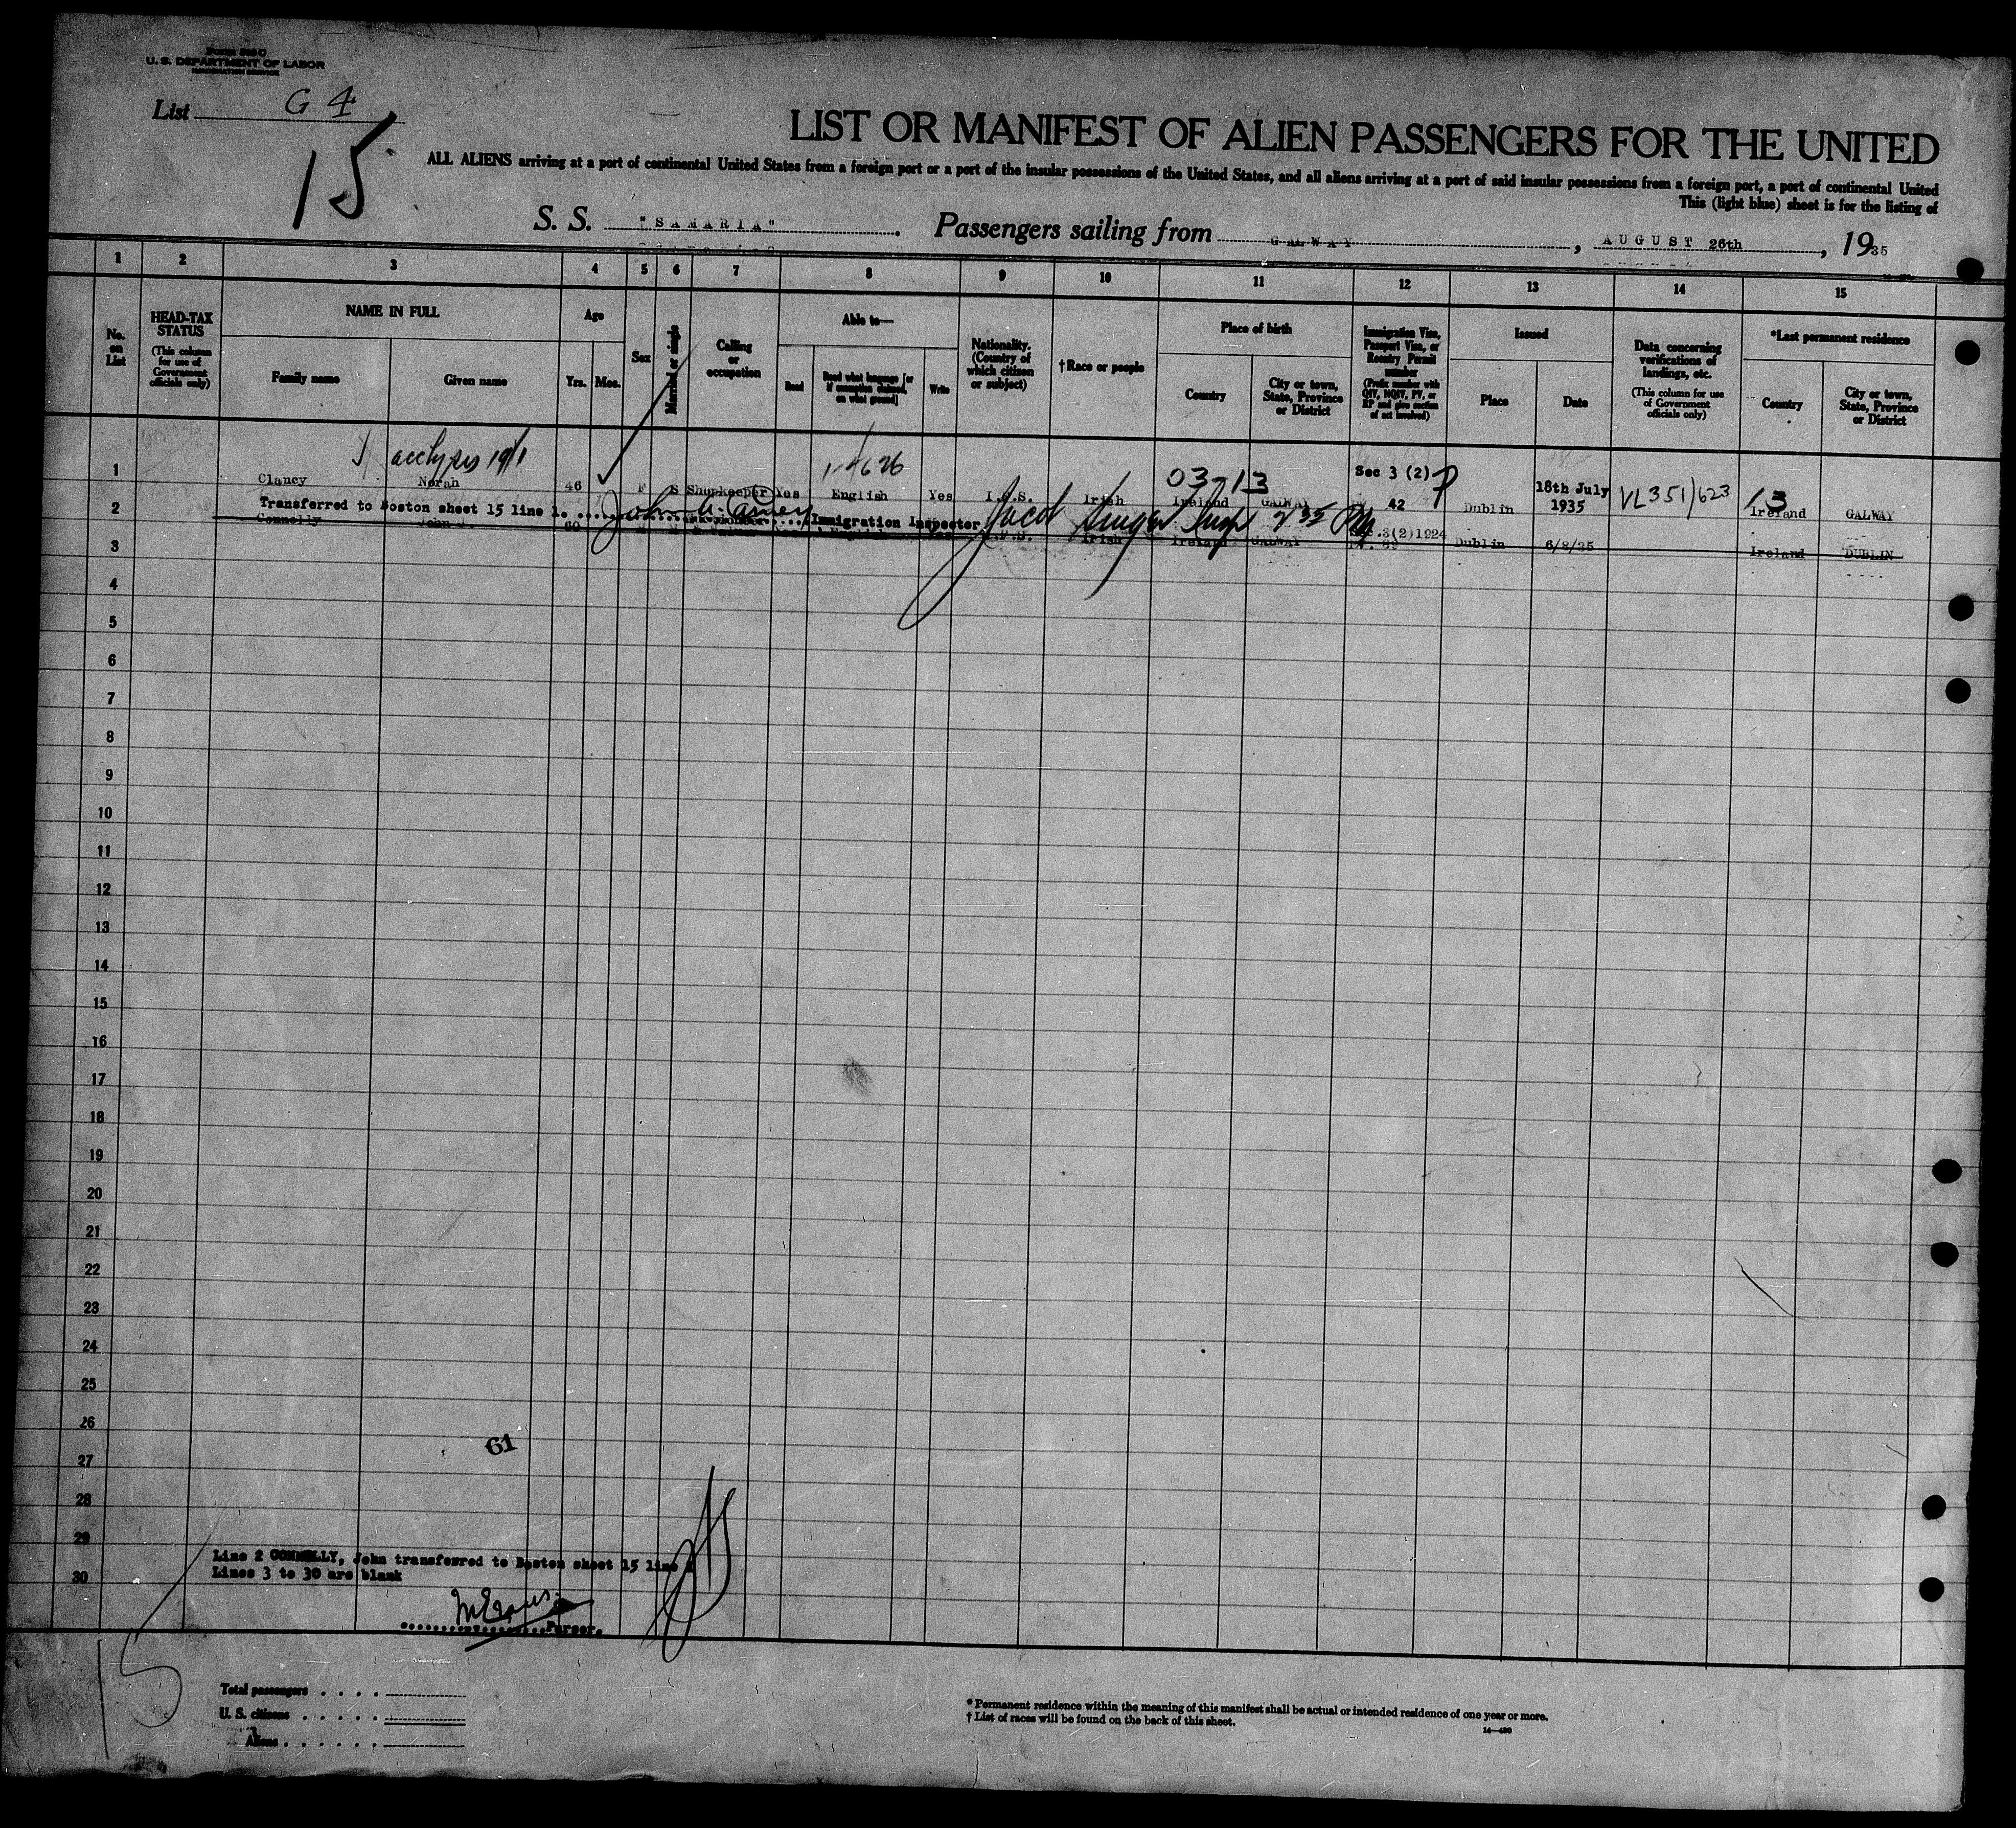 Form 500 O
U. S. DEPARTMENT OF LABOR
IMMIGRATION SERVICE
List G 4
15
LIST OR MANIFEST OF ALIEN PASSENGERS FOR THE UNITED
ALL ALIENS arriving at a port of continental United States from a foreign port or a port of the insular possessions of the United States, and all aliens arriving at a port of said insular possessions from a foreign port, a port of continental United
This (light blue) sheet is for the listing of
S. S. "SAMARIA". Passengers sailing from GALWAY, AUGUST 26th, 1935
1 2 3 4 5 6 7 8 9 10 11 12 13 14 15
No. on List
HEAD-TAX STATUS
(This column for use of Government officials only)
NAME IN FULL
Family name
Given name
Age
Yrs. Mos.
Sex
Married or single
Calling or occupation
Able to—
Read
Read what language [or if exemption claimed, on what ground]
Write
Nationality. (Country of which citizen or subject)
†Race or people
Place of birth
Country
City or town, State, Province or District
Immigration Visa, Passport Visa, or Reentry Permit number
(Prefix number with QIV, NQIV, PV, or RP and give section of act involved)
Issued
Place
Date
Data concerning verifications of landings, etc.
(This column for use of Government officials only)
*Last permanent residence
Country
City or town, State, Province or District
03-13 Sec 3 (2)
1 Clancy Norah 46 F S Shopkeeper Yes English Yes I.F.S. Irish Ireland GALWAY 42 Dublin 18th July 1935 VL351/623 Ireland GALWAY
2 Transferred to Boston sheet 15 line 1. Immigration Inspector
Connelly John J. 60 English Yes I.F.S. Irish Ireland GALWAY 3(2)1924 Dublin 6/8/35 Ireland DUBLIN
3
4
5
6
7
8
9
10
11
12
13
14
15
16
17
18
19
20
21
22
23
24
25
26
61
27
28
29
Line 2 CONNELLY, John transferred to Boston sheet 15 line
Lines 3 to 30 are blank
30
Purser.
15
Total passengers
U. S. citizens
Aliens
* Permanent residence within the meaning of this manifest shall be actual or intended residence of one year or more.
† List of races will be found on the back of this sheet.
14—480